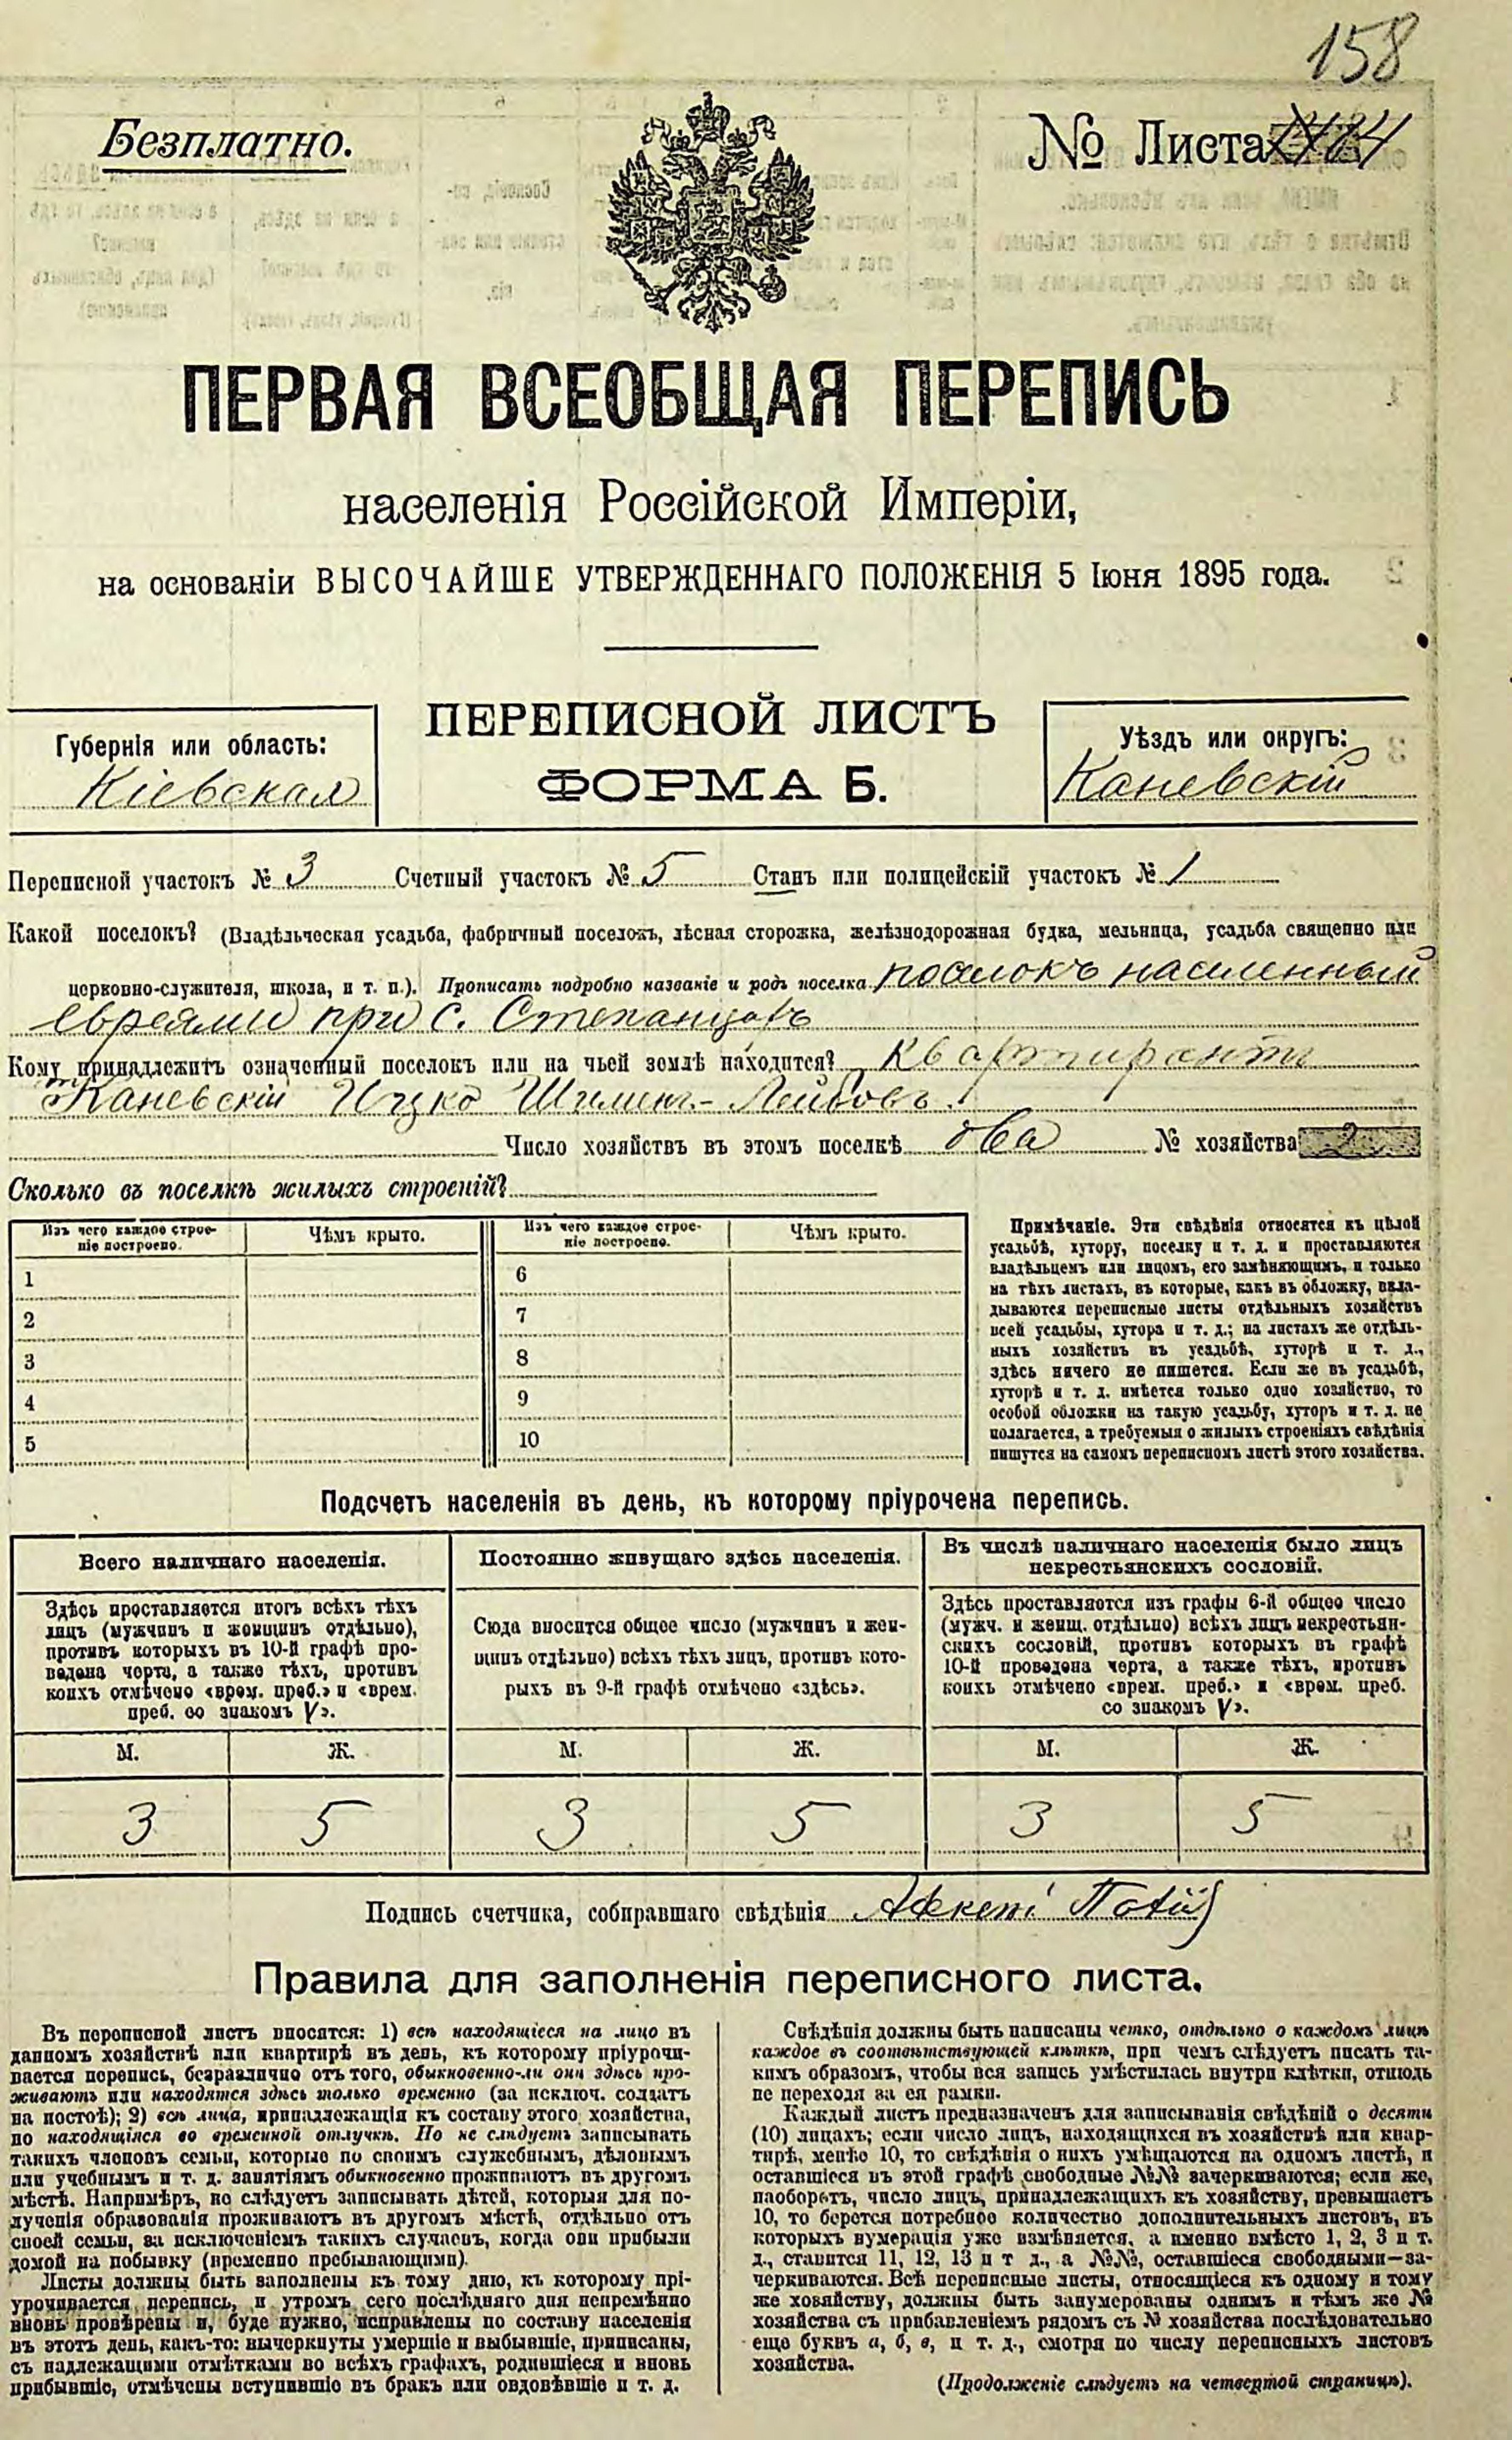 158
Безплатно.
№ Листа
ПЕРВАЯ ВСЕОБЩАЯ ПЕРЕПИСЬ
населенія Россійской Имперіи,
на основаніи ВЫСОЧАЙШЕ УТВЕРЖДЕННАГО ПОЛОЖЕНІЯ 5 Іюня 1895 года.
ПЕРЕПИСНОЙ ЛИСТЪ
ФОРМА Б.
Губернія или область:
Кіевская
Уѣздъ или округъ:
Каневскій
Переписной участокъ № 3 Счетный участокъ № 5 Станъ или полицейскій участокъ № 1
Какой поселокъ? (Владѣльческая усадьба, фабричный поселокъ, лѣсная сторожка, желѣзнодорожная будка, мельница, усадьба священно или
церковно-служителя, школа, и т. п.). Прописать подробно названіе и родъ поселка поселокъ населенный
евреями при с. Степанцахъ
Кому принадлежитъ означенный поселокъ или на чьей землѣ находится? квартирантъ
Каневскій Ицко Лейбовъ.
Число хозяйствъ въ этомъ поселкѣ два № хозяйства 2
Сколько въ поселкѣ жилыхъ строеній?
Изъ чего каждое строе-
ніе построено.
Чѣмъ крыто.
Изъ чего каждое строе-
ніе построено.
Чѣмъ крыто.
1 6
2 7
3 8
4 9
5 10
Примѣчаніе. Эти свѣдѣнія относятся къ цѣлой
усадьбѣ, хутору, поселку и т. д. и проставляются
владѣльцемъ или лицомъ, его замѣняющимъ, и только
на тѣхъ листахъ, въ которые, какъ въ обложку, вкла-
дываются переписные листы отдѣльныхъ хозяйствъ
всей усадьбы, хутора и т. д.; на листахъ же отдѣль-
ныхъ хозяйствъ въ усадьбѣ, хуторѣ и т. д.,
здѣсь ничего не пишется. Если же въ усадьбѣ,
хуторѣ и т. д. имѣется только одно хозяйство, то
особой обложки на такую усадьбу, хуторъ и т. д. не
полагается, а требуемыя о жилыхъ строеніяхъ свѣдѣнія
пишутся на самомъ переписномъ листѣ этого хозяйства.
Подсчетъ населенія въ день, къ которому пріурочена перепись.
Всего наличнаго населенія.
Здѣсь проставляется итогъ всѣхъ тѣхъ
лицъ (мужчинъ и женщинъ отдѣльно),
противъ которыхъ въ 10-й графѣ про-
ведена черта, а также тѣхъ, противъ
коихъ отмѣчено «врем. преб.» и «врем.
преб. со знакомъ V».
М. Ж.
3 5
Постоянно живущаго здѣсь населенія.
Сюда вносится общее число (мужчинъ и жен-
щинъ отдѣльно) всѣхъ тѣхъ лицъ, противъ кото-
рыхъ въ 9-й графѣ отмѣчено «здѣсь».
М. Ж.
3 5
Въ числѣ наличнаго населенія было лицъ
некрестьянскихъ сословій.
Здѣсь проставляется изъ графы 6-й общее число
(мужч. и женщ. отдѣльно) всѣхъ лицъ некрестьян-
скихъ сословій, противъ которыхъ въ графѣ
10-й проведена черта, а также тѣхъ, противъ
коихъ отмѣчено «врем. преб.» и «врем. преб.
со знакомъ V».
М. Ж.
3 5
Подпись счетчика, собиравшаго свѣдѣнія
Правила для заполненія переписного листа.
Въ переписной листъ вносятся: 1) всѣ находящіеся на лицо въ
данномъ хозяйствѣ или квартирѣ въ день, къ которому пріурочи-
вается перепись, безразлично отъ того, обыкновенно-ли они здѣсь про-
живаютъ или находятся здѣсь только временно (за исключ. солдатъ
на постоѣ); 2) всѣ лица, принадлежащія къ составу этого хозяйства,
но находящіяся во временной отлучкѣ. Но не слѣдуетъ записывать
такихъ членовъ семьи, которые по своимъ служебнымъ, дѣловымъ
или учебнымъ и т. д. занятіямъ обыкновенно проживаютъ въ другомъ
мѣстѣ. Напримѣръ, не слѣдуетъ записывать дѣтей, которыя для по-
лученія образованія проживаютъ въ другомъ мѣстѣ, отдѣльно отъ
своей семьи, за исключеніемъ такихъ случаевъ, когда они прибыли
домой на побывку (временно пребывающими).
Листы должны быть заполнены къ тому дню, къ которому прі-
урочивается перепись, и утромъ сего послѣдняго дня непремѣнно
вновь провѣрены и, буде нужно, исправлены по составу населенія
въ этотъ день, какъ-то: вычеркнуты умершіе и выбывшіе, приписаны,
съ надлежащими отмѣтками во всѣхъ графахъ, родившіеся и вновь
прибывшіе, отмѣчены вступившіе въ бракъ или овдовѣвшіе и т. д.
Свѣдѣнія должны быть написаны четко, отдѣльно о каждомъ лицѣ
каждое въ соотвѣтствующей клѣткѣ, при чемъ слѣдуетъ писать та-
кимъ образомъ, чтобы вся запись умѣстилась внутри клѣтки, отнюдь
не переходя за ея рамки.
Каждый листъ предназначенъ для записыванія свѣдѣній о десяти
(10) лицахъ; если число лицъ, находящихся въ хозяйствѣ или квар-
тирѣ, менѣе 10, то свѣдѣнія о нихъ умѣщаются на одномъ листѣ, и
оставшіеся въ этой графѣ свободные №№ зачеркиваются; если же,
наоборотъ, число лицъ, принадлежащихъ къ хозяйству, превышаетъ
10, то берется потребное количество дополнительныхъ листовъ, въ
которыхъ нумерація уже измѣняется, а именно вмѣсто 1, 2, 3 и т.
д., ставится 11, 12, 13 и т д., а №№, оставшіеся свободными—за-
черкиваются. Всѣ переписные листы, относящіеся къ одному и тому
же хозяйству, должны быть занумерованы однимъ и тѣмъ же №
хозяйства съ прибавленіемъ рядомъ съ № хозяйства послѣдовательно
еще буквъ а, б, в, и т. д., смотря по числу переписныхъ листовъ
хозяйства.
(Продолженіе слѣдуетъ на четвертой страницѣ).